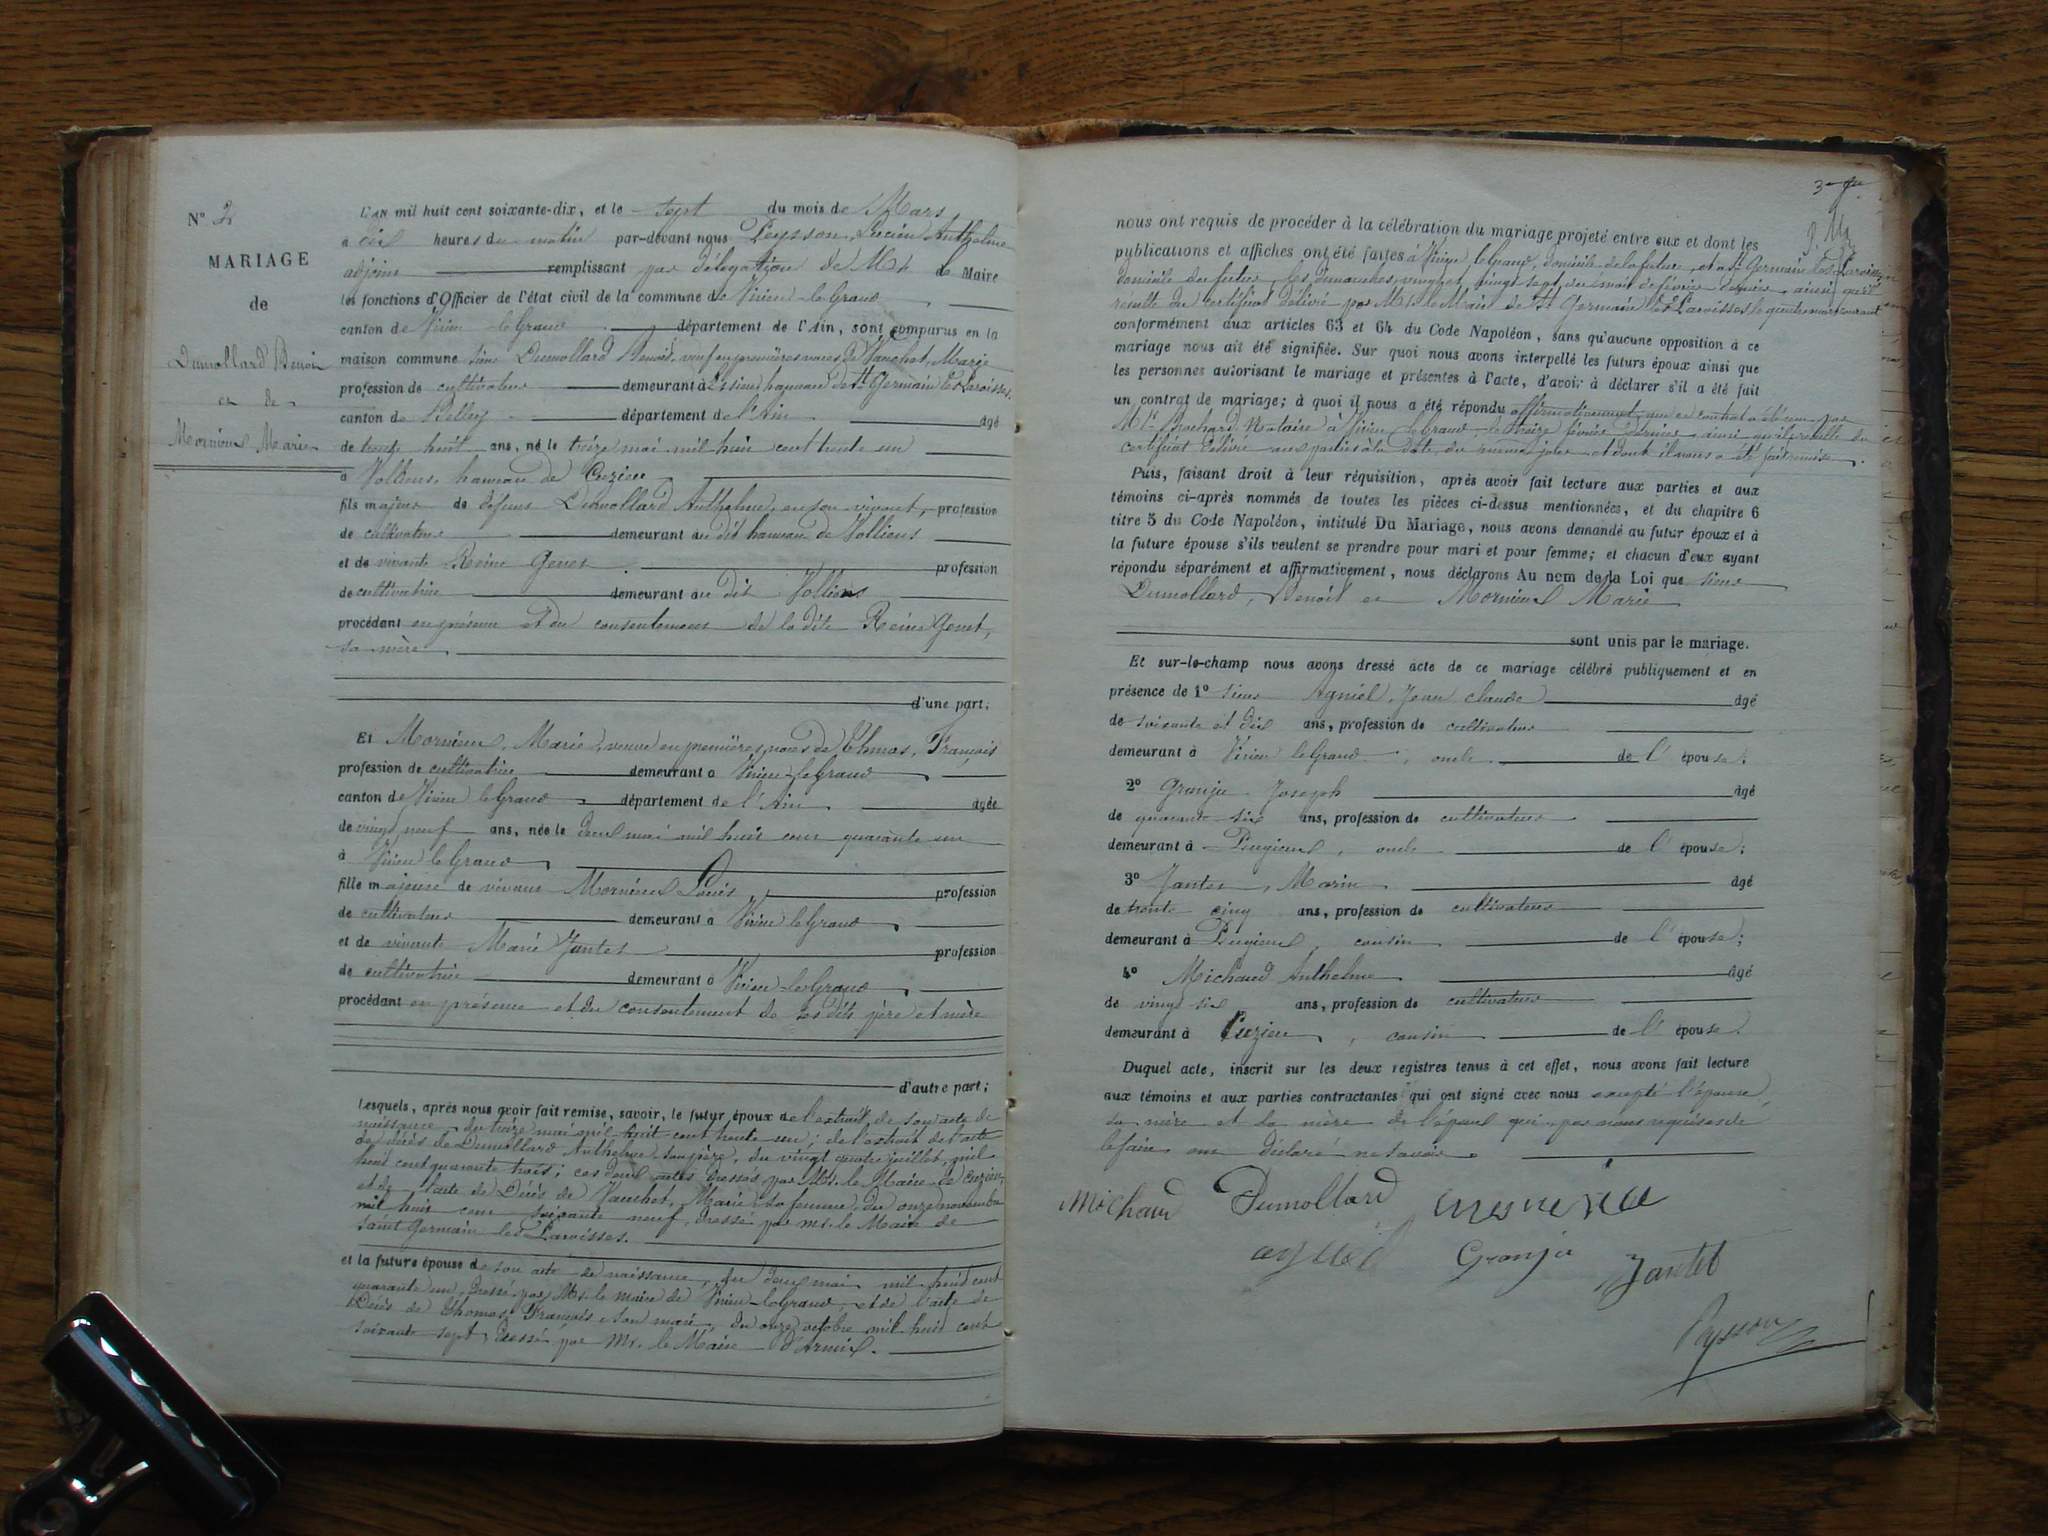 N° 2
MARIAGE
de
Dumollard Benoit
et de
Mornieux Marie
L'AN mil huit cent soixante-dix, et le sept du mois de Mars,
à dix heures du matin par-devant nous Peysson, Lucien Anthelme
adjoint remplissant par délégation de Mr le Maire
les fonctions d'Officier de l'état civil de la commune de Virieu-le-Grand
canton de Virieu-le-Grand département de l'Ain, sont comparus en la
maison commune sieur Dumollard Benoit, veuf en premières noces de Vauchet, Marie
profession de cultivateur demeurant à Essieux hameau de St Germain les Paroisses
canton de Belley département de l'Ain âgé
de trente huit ans, né le treize mai mil huit cent trente un
à Volliens, hameau de Cuzieu
fils majeur de défunt Dumollard Anthelme, en son vivant, profession
de cultivateur demeurant au dit hameau de Volliens
et de vivante Reine Genet profession
de cultivatrice demeurant au dit Volliens
procédant en présence et du consentement de la dite Reine Genet,
sa mère
d'une part;
Et Mornieux, Marie, veuve en premières noces de Thomas, François
profession de cultivatrice demeurant à Virieu-le-Grand
canton de Virieu le Grand département de l'Ain âgée
de vingt neuf ans, née le deux mai mil huit cent quarante un
à Virieu le Grand
fille majeure de vivant Mornieux Louis profession
de cultivateur demeurant à Virieu le Grand
et de vivante Marie Jantet profession
de cultivatrice demeurant à Virieu-le-Grand
procédant en présence et du consentement de ses dits père et mère
d'autre part;
Lesquels, après nous avoir fait remise, savoir, le futur époux de l'extrait de son acte de
naissance, du treize mai mil huit cent trente un; de l'extrait de l'acte
de décès de Dumollard Anthelme son père, du vingt quatre juillet, mil
huit cent quarante trois; ces deux actes dressés par Mr. le Maire de Cuzieu,
et de l'acte de Décès de Vauchet, Marie, sa femme, du onze novembre
mil huit cent soixante neuf, dressé par mr. le Maire de
Saint Germain les Paroisses.
et la future épouse de son acte de naissance, du deux mai mil huit cent
quarante un, dressé par Mr. le maire de Virieu-le-Grand, et de l'acte de
Décès de Thomas, François, son mari, du onze octobre mil huit cent
soixante sept, dressé par Mr. le Maire d'Armix.
nous ont requis de procéder à la célébration du mariage projeté entre eux et dont les
publications et affiches ont été faites à Virieu le Grand, domicile de la future, et à St Germain les Paroisses
domicile du futur, les dimanches vingt et vingt sept du mois de février dernier ainsi qu'il
résulte du certificat délivré par Mr. le Maire de St Germain les Paroisses le quatre mars courant
conformément aux articles 63 et 64 du Code Napoléon, sans qu'aucune opposition à ce
mariage nous ait été signifiée. Sur quoi nous avons interpellé les futurs époux ainsi que
les personnes autorisant le mariage et présentes à l'acte, d'avoir à déclarer s'il a été fait
un contrat de mariage; à quoi il nous a été répondu affirmativement, que ce contrat a été reçu par
Mr. Brochard, Notaire à Virieu le Grand, le treize février dernier ainsi qu'il résulte du
certificat délivré aux parties à la date du même jour et dont il nous a été fait remise.
Puis, faisant droit à leur réquisition, après avoir fait lecture aux parties et aux
témoins ci-après nommés de toutes les pièces ci-dessus mentionnées, et du chapitre 6
titre 5 du Code Napoléon, intitulé Du Mariage, nous avons demandé au futur époux et à
la future épouse s'ils veulent se prendre pour mari et pour femme; et chacun d'eux ayant
répondu séparément et affirmativement, nous déclarons Au nom de la Loi que sieur
Dumollard, Benoit et Mornieux Marie
sont unis par le mariage.
Et sur-le-champ nous avons dressé acte de ce mariage célébré publiquement et en
présence de 1° sieur Agniel, Jean claude âgé
de soixante et dix ans, profession de cultivateur
demeurant à Virieu le Grand, oncle de l'épouse;
2° Granju Joseph âgé
de quarante-six ans, profession de cultivateur
demeurant à Pugieu, oncle de l'épouse;
3° Jantet, Marin âgé
de trente cinq ans, profession de cultivateur
demeurant à Pugieu, cousin de l'épouse;
4° Michaud Anthelme âgé
de vingt six ans, profession de cultivateur
demeurant à Cuzieu, cousin de l'épouse.
Duquel acte, inscrit sur les deux registres tenus à cet effet, nous avons fait lecture
aux témoins et aux parties contractantes qui ont signé avec nous excepté l'épouse,
sa mère et la mère de l'époux qui, par nous requises de
le faire ont déclaré ne savoir.
Michaud Dumollard Mornieux
agniel Granju Jantet
Peysson